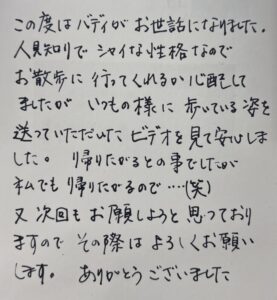 この度はバディがお世話になりました。
人見知りでシャイな性格なので
お散歩に行ってくれるか心配して
ましたが いつもの様に歩いている姿を
送っていただいた ビデオを見て安心しま
した。 帰りたがるとの事でしたが
私でも帰りたがるので・・・・(笑)
又 次回も お願しようと思っており
ますので その際は よろしくお願い
します。 ありがとうございました